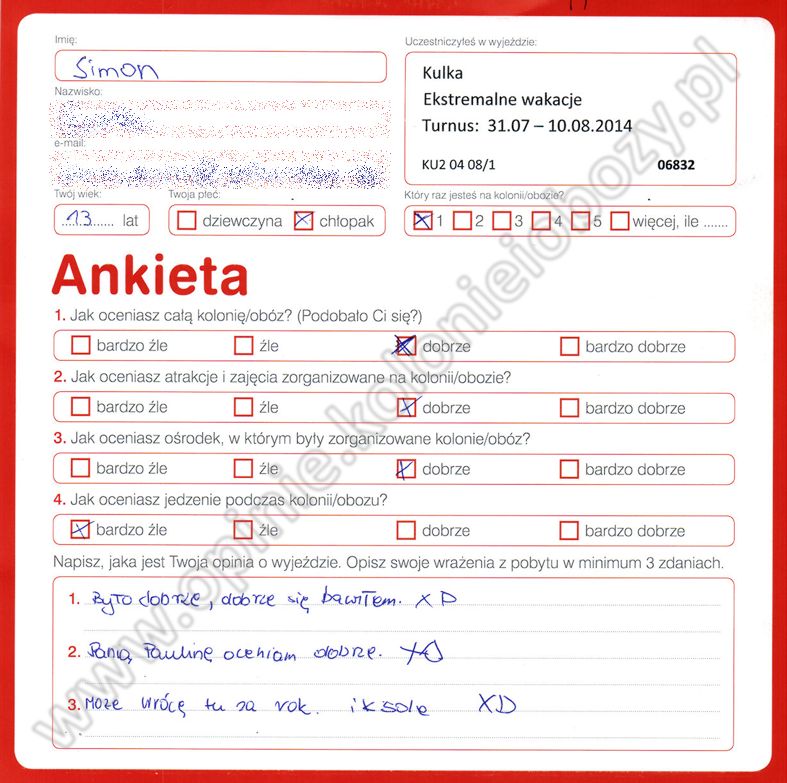 Imię:
Uczestniczyłeś w wyjeździe:
Simon
Kulka
Nazwisko:
Ekstremalne wakacje
Turnus: 31.07 – 10.08.2014
e-mail:
KU2 04 08/1 06832
Twój wiek: Twoja płeć: Który raz jesteś na kolonii/obozie?
13 lat dziewczyna chłopak 1 2 3 4 5 więcej, ile .......
Ankieta
1. Jak oceniasz całą kolonię/obóz? (Podobało Ci się?)
bardzo źle źle dobrze bardzo dobrze
2. Jak oceniasz atrakcje i zajęcia zorganizowane na kolonii/obozie?
bardzo źle źle dobrze bardzo dobrze
3. Jak oceniasz ośrodek, w którym były zorganizowane kolonie/obóz?
bardzo źle źle dobrze bardzo dobrze
4. Jak oceniasz jedzenie podczas kolonii/obozu?
bardzo źle źle dobrze bardzo dobrze
Napisz, jaka jest Twoja opinia o wyjeździe. Opisz swoje wrażenia z pobytu w minimum 3 zdaniach.
1. Było dobrze, dobrze się bawiłem. XD
2. Panią Paulinę oceniam dobrze. XD
3. Może wrócę tu za rok. iksde XD
www.opinie.kolonieiobozy.pl